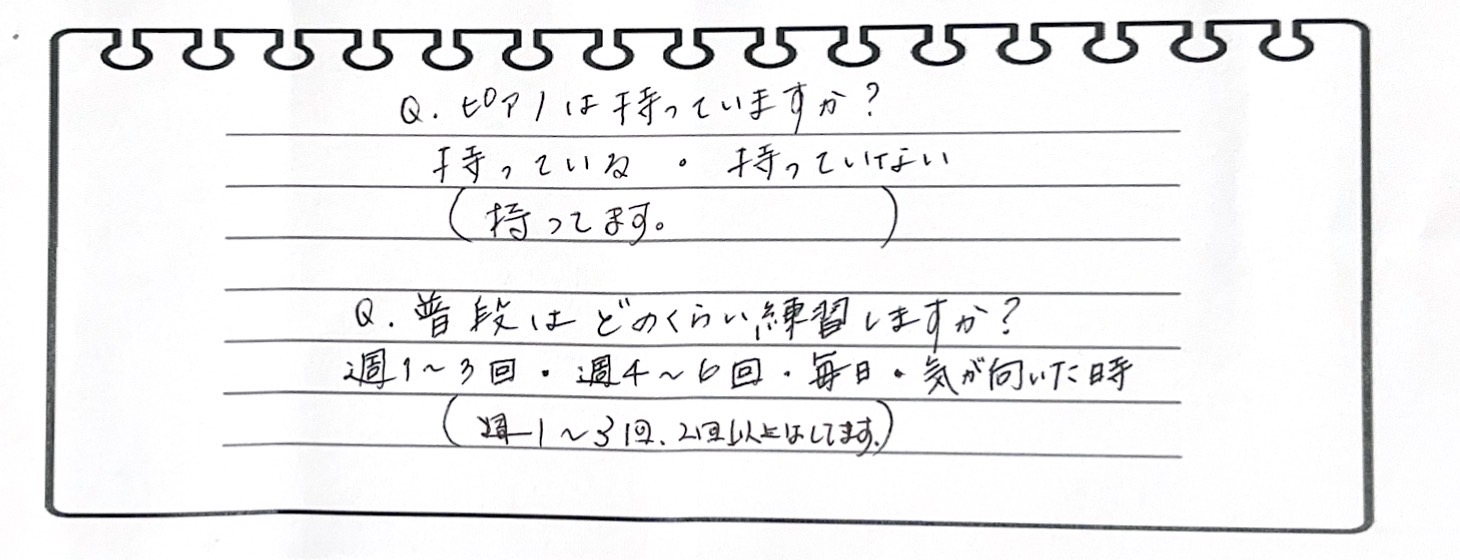 Q. ピアノは持っていますか?
持っている ・ 持っていない
(持ってます。)
Q. 普段はどのくらい練習しますか?
週1~3回・週4~6回・毎日・気が向いた時
(週1~3回、2回以上はしてます。)